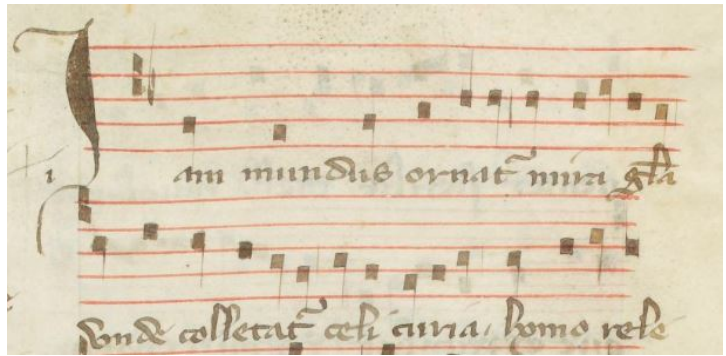 Iam mundus ornatᷣ mira gl̄a
vnde colletatᷣ celi curia. homo rele